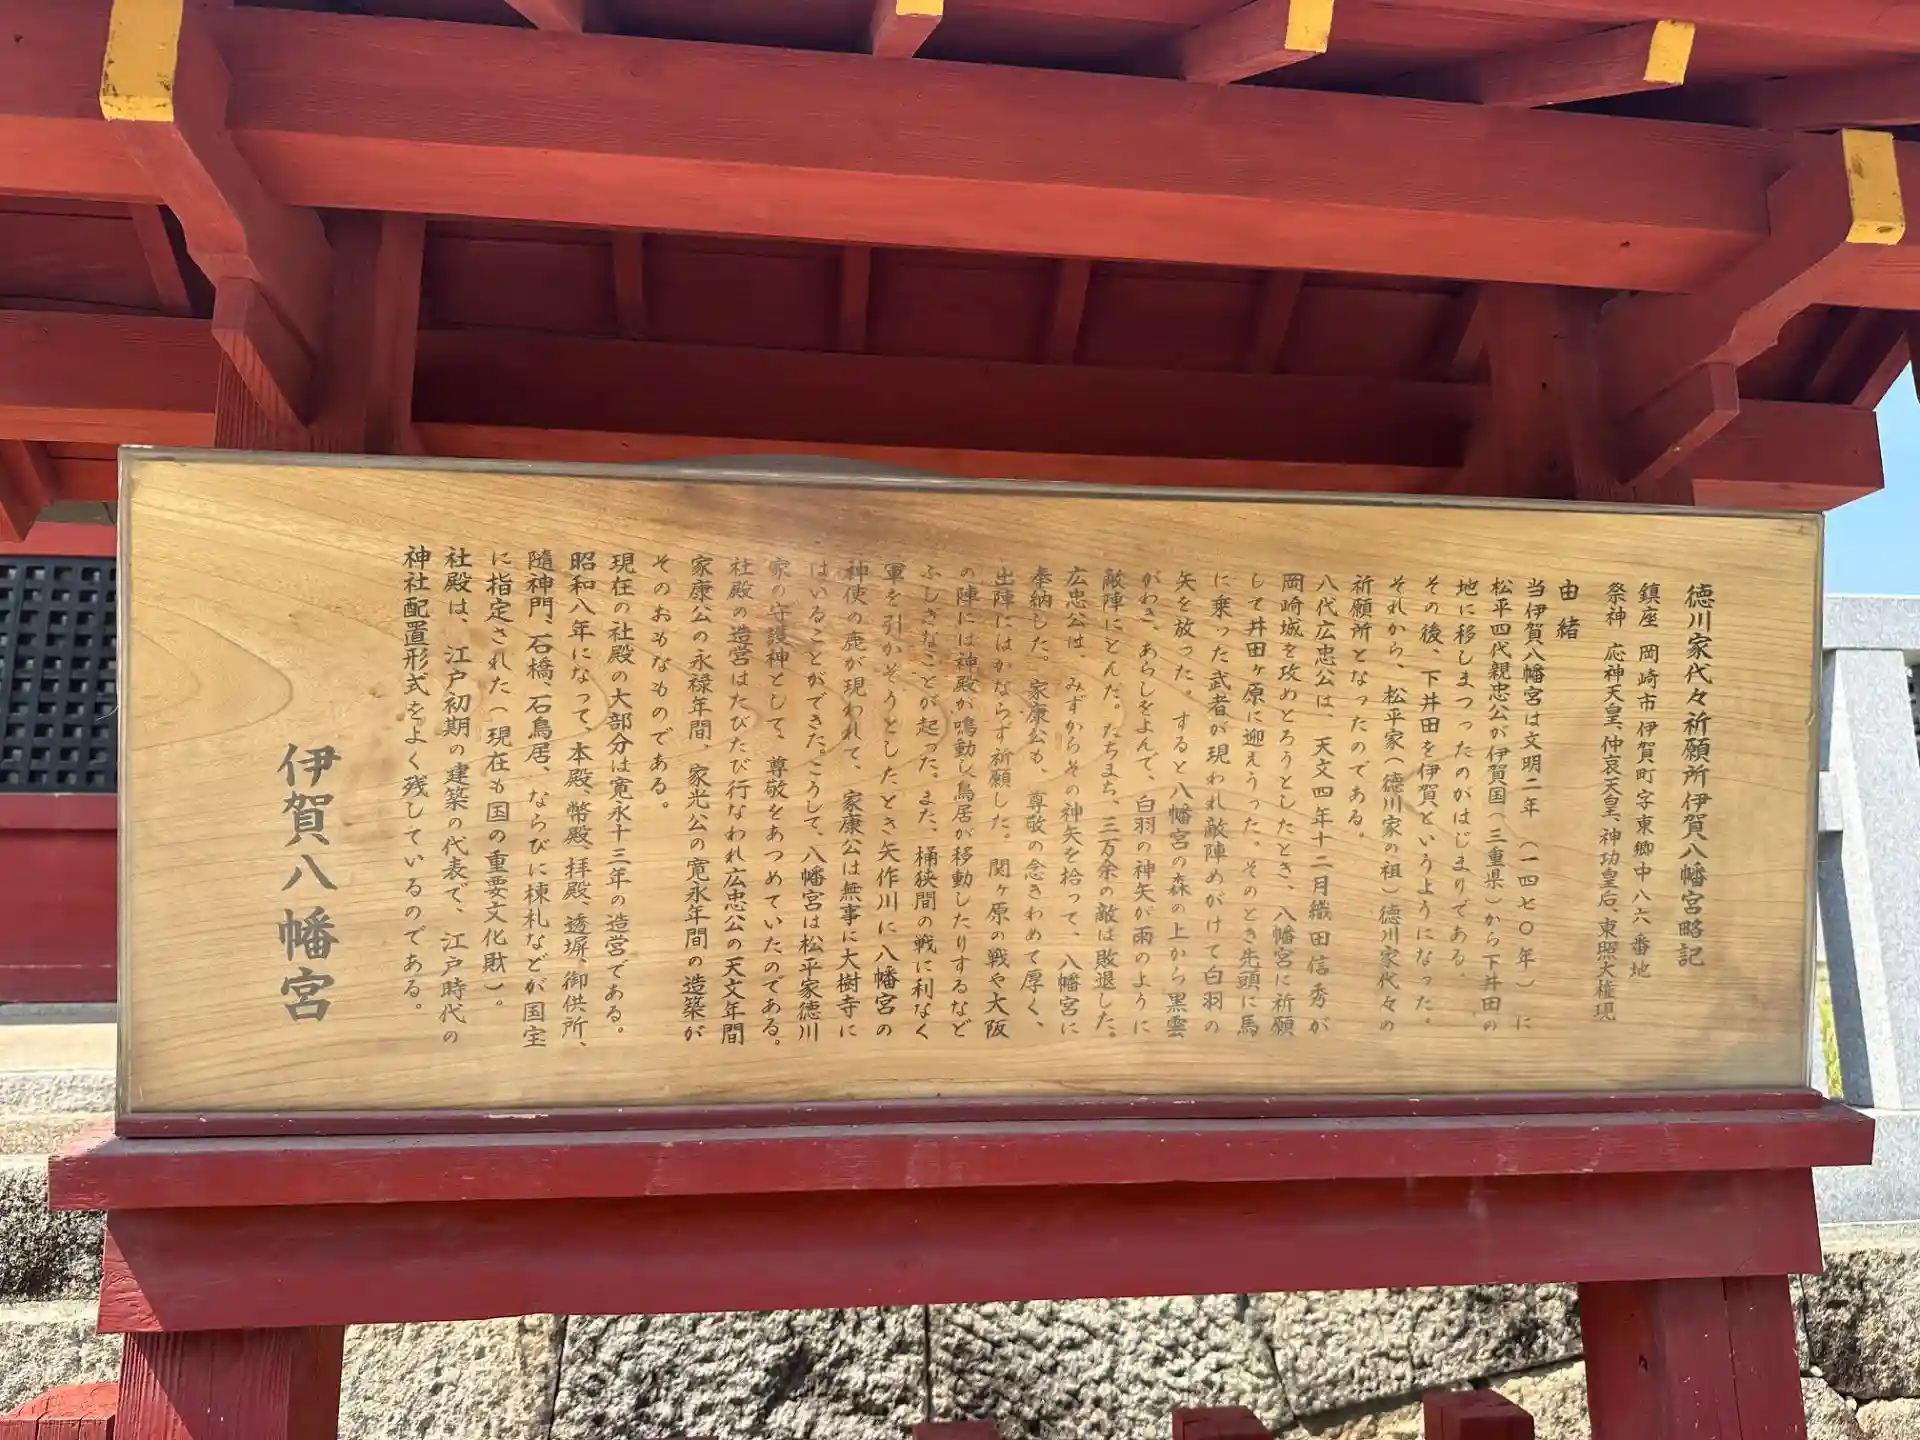 徳川家代々祈願所伊賀八幡宮略記
鎮座 岡崎市伊賀町字東郷中八六番地
祭神 応神天皇、仲哀天皇、神功皇后、東照大権現
由緒
当伊賀八幡宮は文明二年 (一四七〇年) に
松平四代親忠公が伊賀国(三重県)から下井田の
地に移しまつったのがはじまりである。
その後、下井田を伊賀というようになった。
それから、松平家(徳川家の祖)徳川家代々の
祈願所となったのである。
八代広忠公は、天文四年十二月織田信秀が
岡崎城を攻めとろうとしたとき、八幡宮に祈願
して井田ヶ原に迎えうった。そのとき先頭に馬
に乗った武者が現われ敵陣めがけて白羽の
矢を放った。すると八幡宮の森の上から黒雲
がわき、あらしをよんで、白羽の神矢が雨のように
敵陣にとんだ。たちまち、三万余の敵は敗退した。
広忠公は、みずからその神矢を拾って、八幡宮に
奉納した。家康公も、尊敬の念きわめて厚く、
出陣にはかならず祈願した。関ヶ原の戦や大阪
の陣には神殿が鳴動し、鳥居が移動したりするなど
ふしぎなことが起った。また、桶狭間の戦に利なく
軍を引かそうとしたとき矢作川に八幡宮の
神使の鹿が現われて、家康公は無事に大樹寺に
はいることができた。こうして、八幡宮は松平家徳川
家の守護神として、尊敬をあつめていたのである。
社殿の造営はたびたび行なわれ広忠公の天文年間
家康公の永禄年間、家光公の寛永年間の造築が
そのおもなものである。
現在の社殿の大部分は寛永十三年の造営である。
昭和八年になって、本殿、幣殿、拝殿、透塀、御供所、
随神門、石橋、石鳥居、ならびに棟札などが国宝
に指定された(現在も国の重要文化財)。
社殿は、江戸初期の建築の代表で、江戸時代の
神社配置形式をよく残しているのである。
伊賀八幡宮